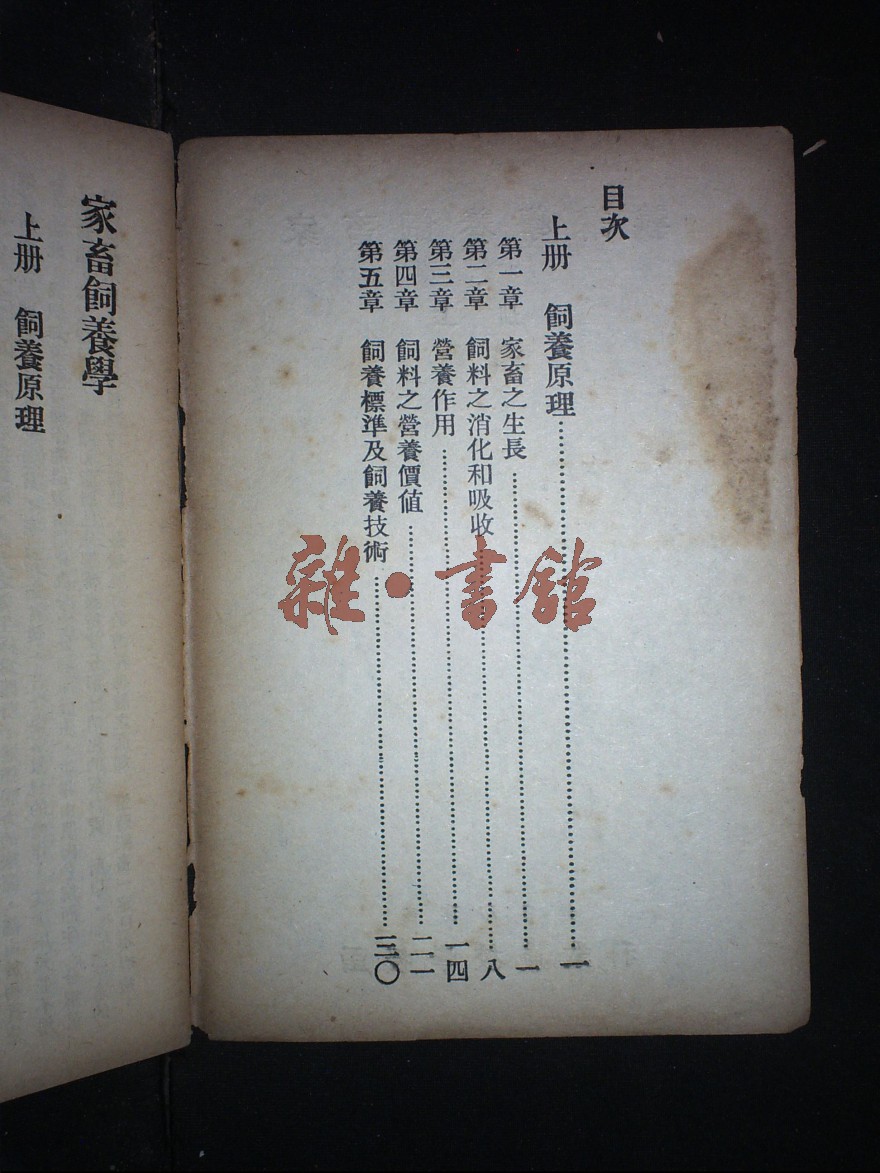 目次
上册 飼養原理……一
第一章 家畜之生長……一
第二章 飼料之消化和吸收……八
第三章 營養作用……一四
第四章 飼料之營養價值……二一
第五章 飼養標準及飼養技術……三〇
家畜飼養學
上册 飼養原理
雜·書館